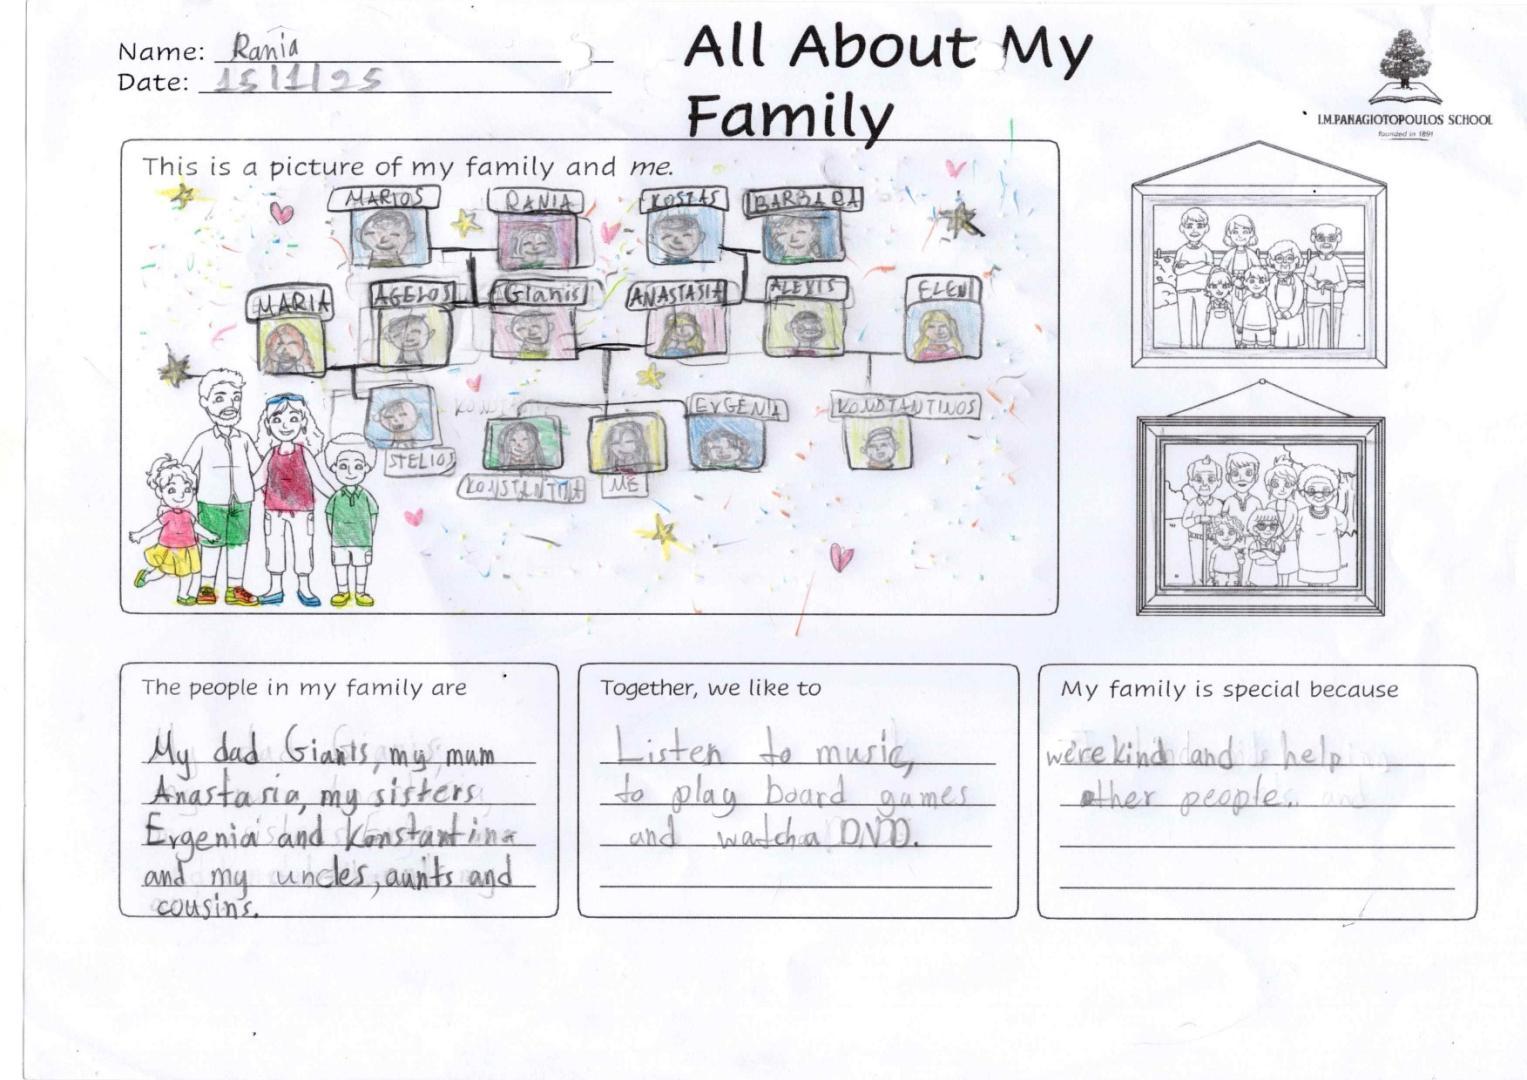 Name: Rania
Date: 15/1/25
All About My
Family
I.M.PANAGIOTOPOULOS SCHOOL
founded in 1891
This is a picture of my family and me.
MARIOS RANIA KOSTAS BARBARA
MARIA AGELOS Gianis ANASTASIA ALEXIS ELENI
EVGENIA KONSTANTINOS
STELIOS
KONSTANTINA ME
The people in my family are
My dad Gianis, my mum
Anastasia, my sisters
Evgenia and Konstantina
and my uncles, aunts and
cousins.
Together, we like to
Listen to music,
to play board games
and watch a DVD.
My family is special because
we're kind and help
other people.